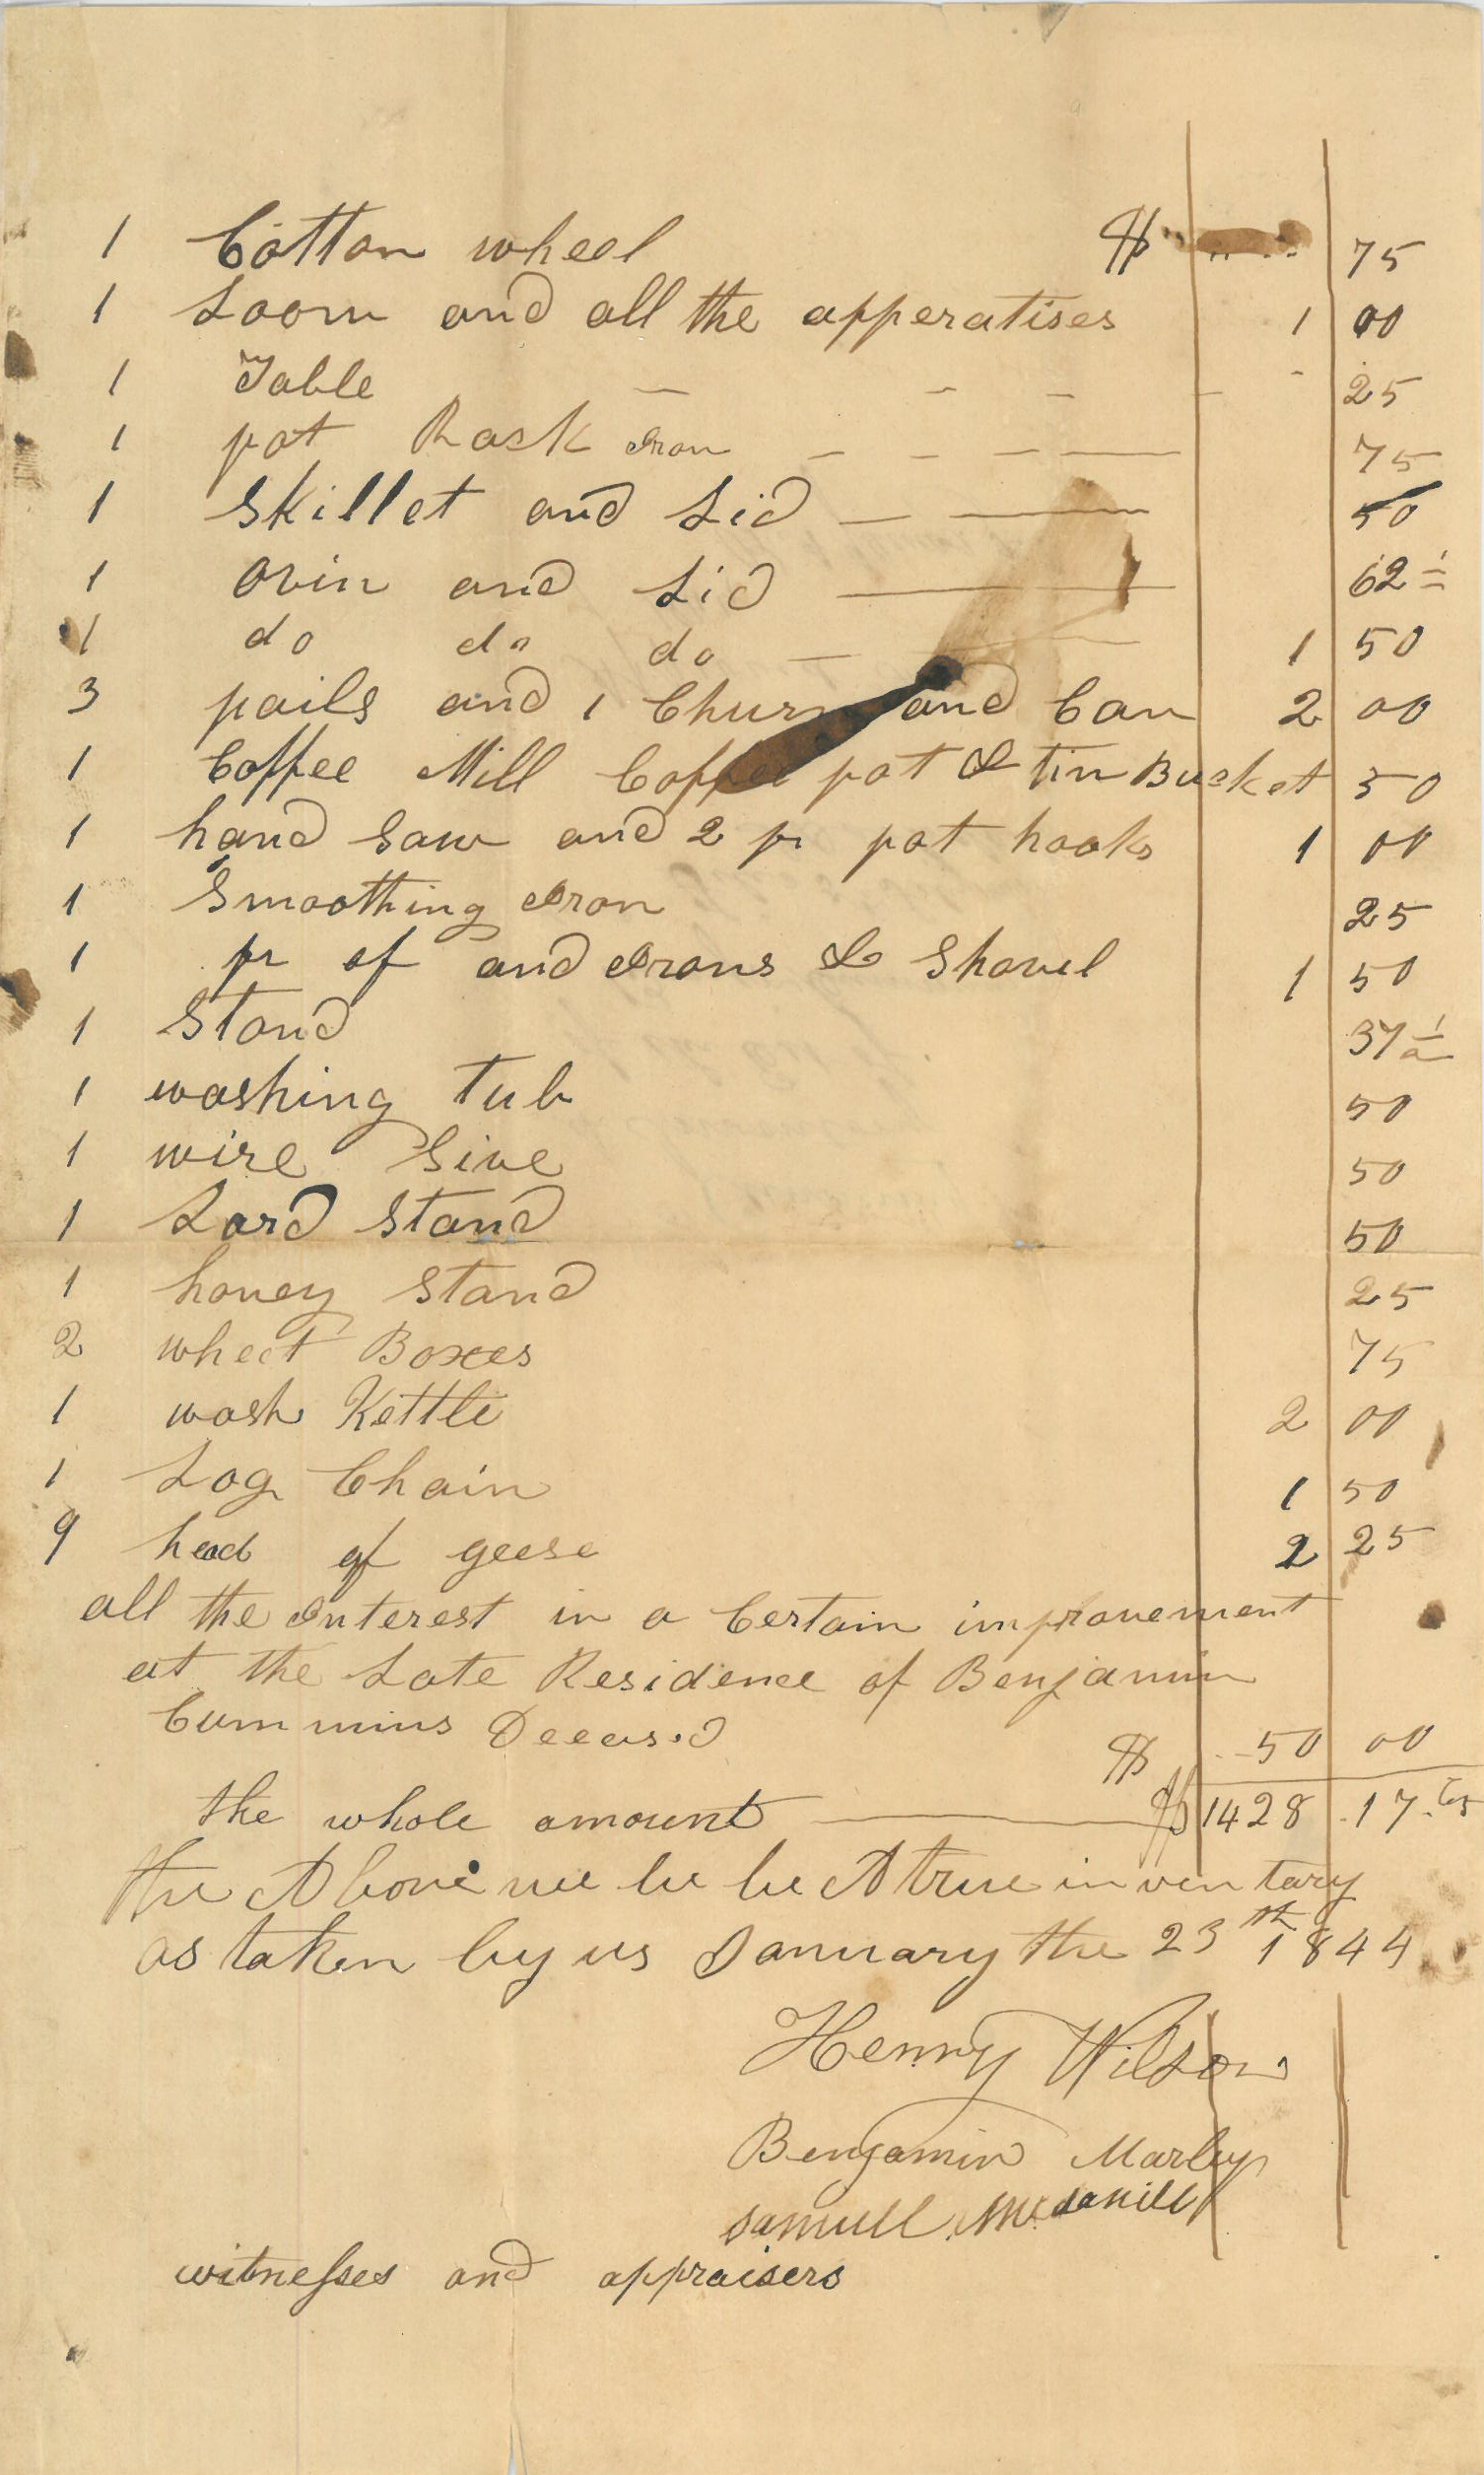 1 Cotton wheel $ 75
1 Loom and all the apperatises 1 00
1 Table 25
1 pot Rask Iron 75
1 Skillet and Lid 50
1 ovin and Lid 62 1/2
1 do do do 1 50
3 pails and 1 Churn and Can 2 00
1 Coffee Mill Coffee pot & tin Bucket 50
1 hand Saw and 2 pr pot hooks 1 00
1 Smoothing Iron 25
1 pr of and Irons & Shovel 1 50
1 Stand 37 1/2
1 washing Tub 50
1 wire Sive 50
1 Lard Stand 50
1 honey Stand 25
2 wheat Boxes 75
1 wash Kettle 2 00
1 Log Chain 1 50
9 head of geese 2 25
all the Interest in a Certain improvement
at the Late Residence of Benjamin
Cummins Deceas.d $ 50 00
the whole amount $ 1428 .17 cts
the Above we be be A true inventary
as taken by us January the 23th 1844
Henry Wilson
Benjamin Marley
Samuell McDaniell
witnesses and appraisers